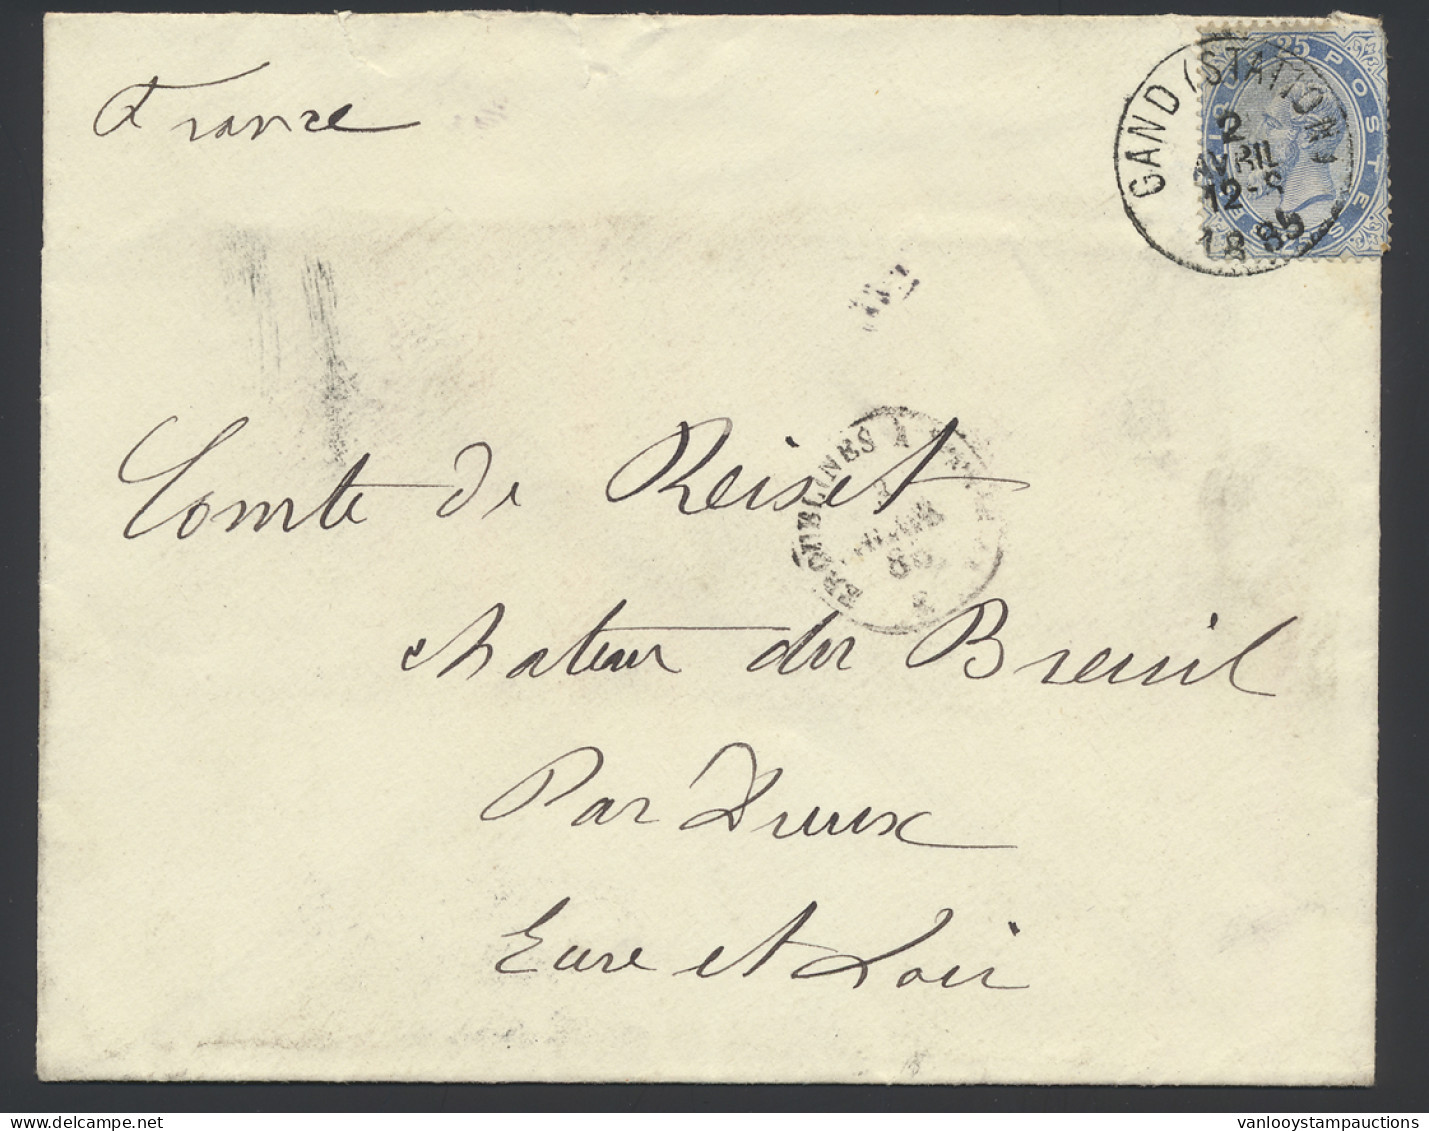 France
25 POSTES
GAND (STATION)
2
AVRIL
12-S
1885
Comte de Reiset
ERQUELINES A
chateau du Breuil
Par Dreux
Eure et Loir
delcampe.net
vanlooystampauctions